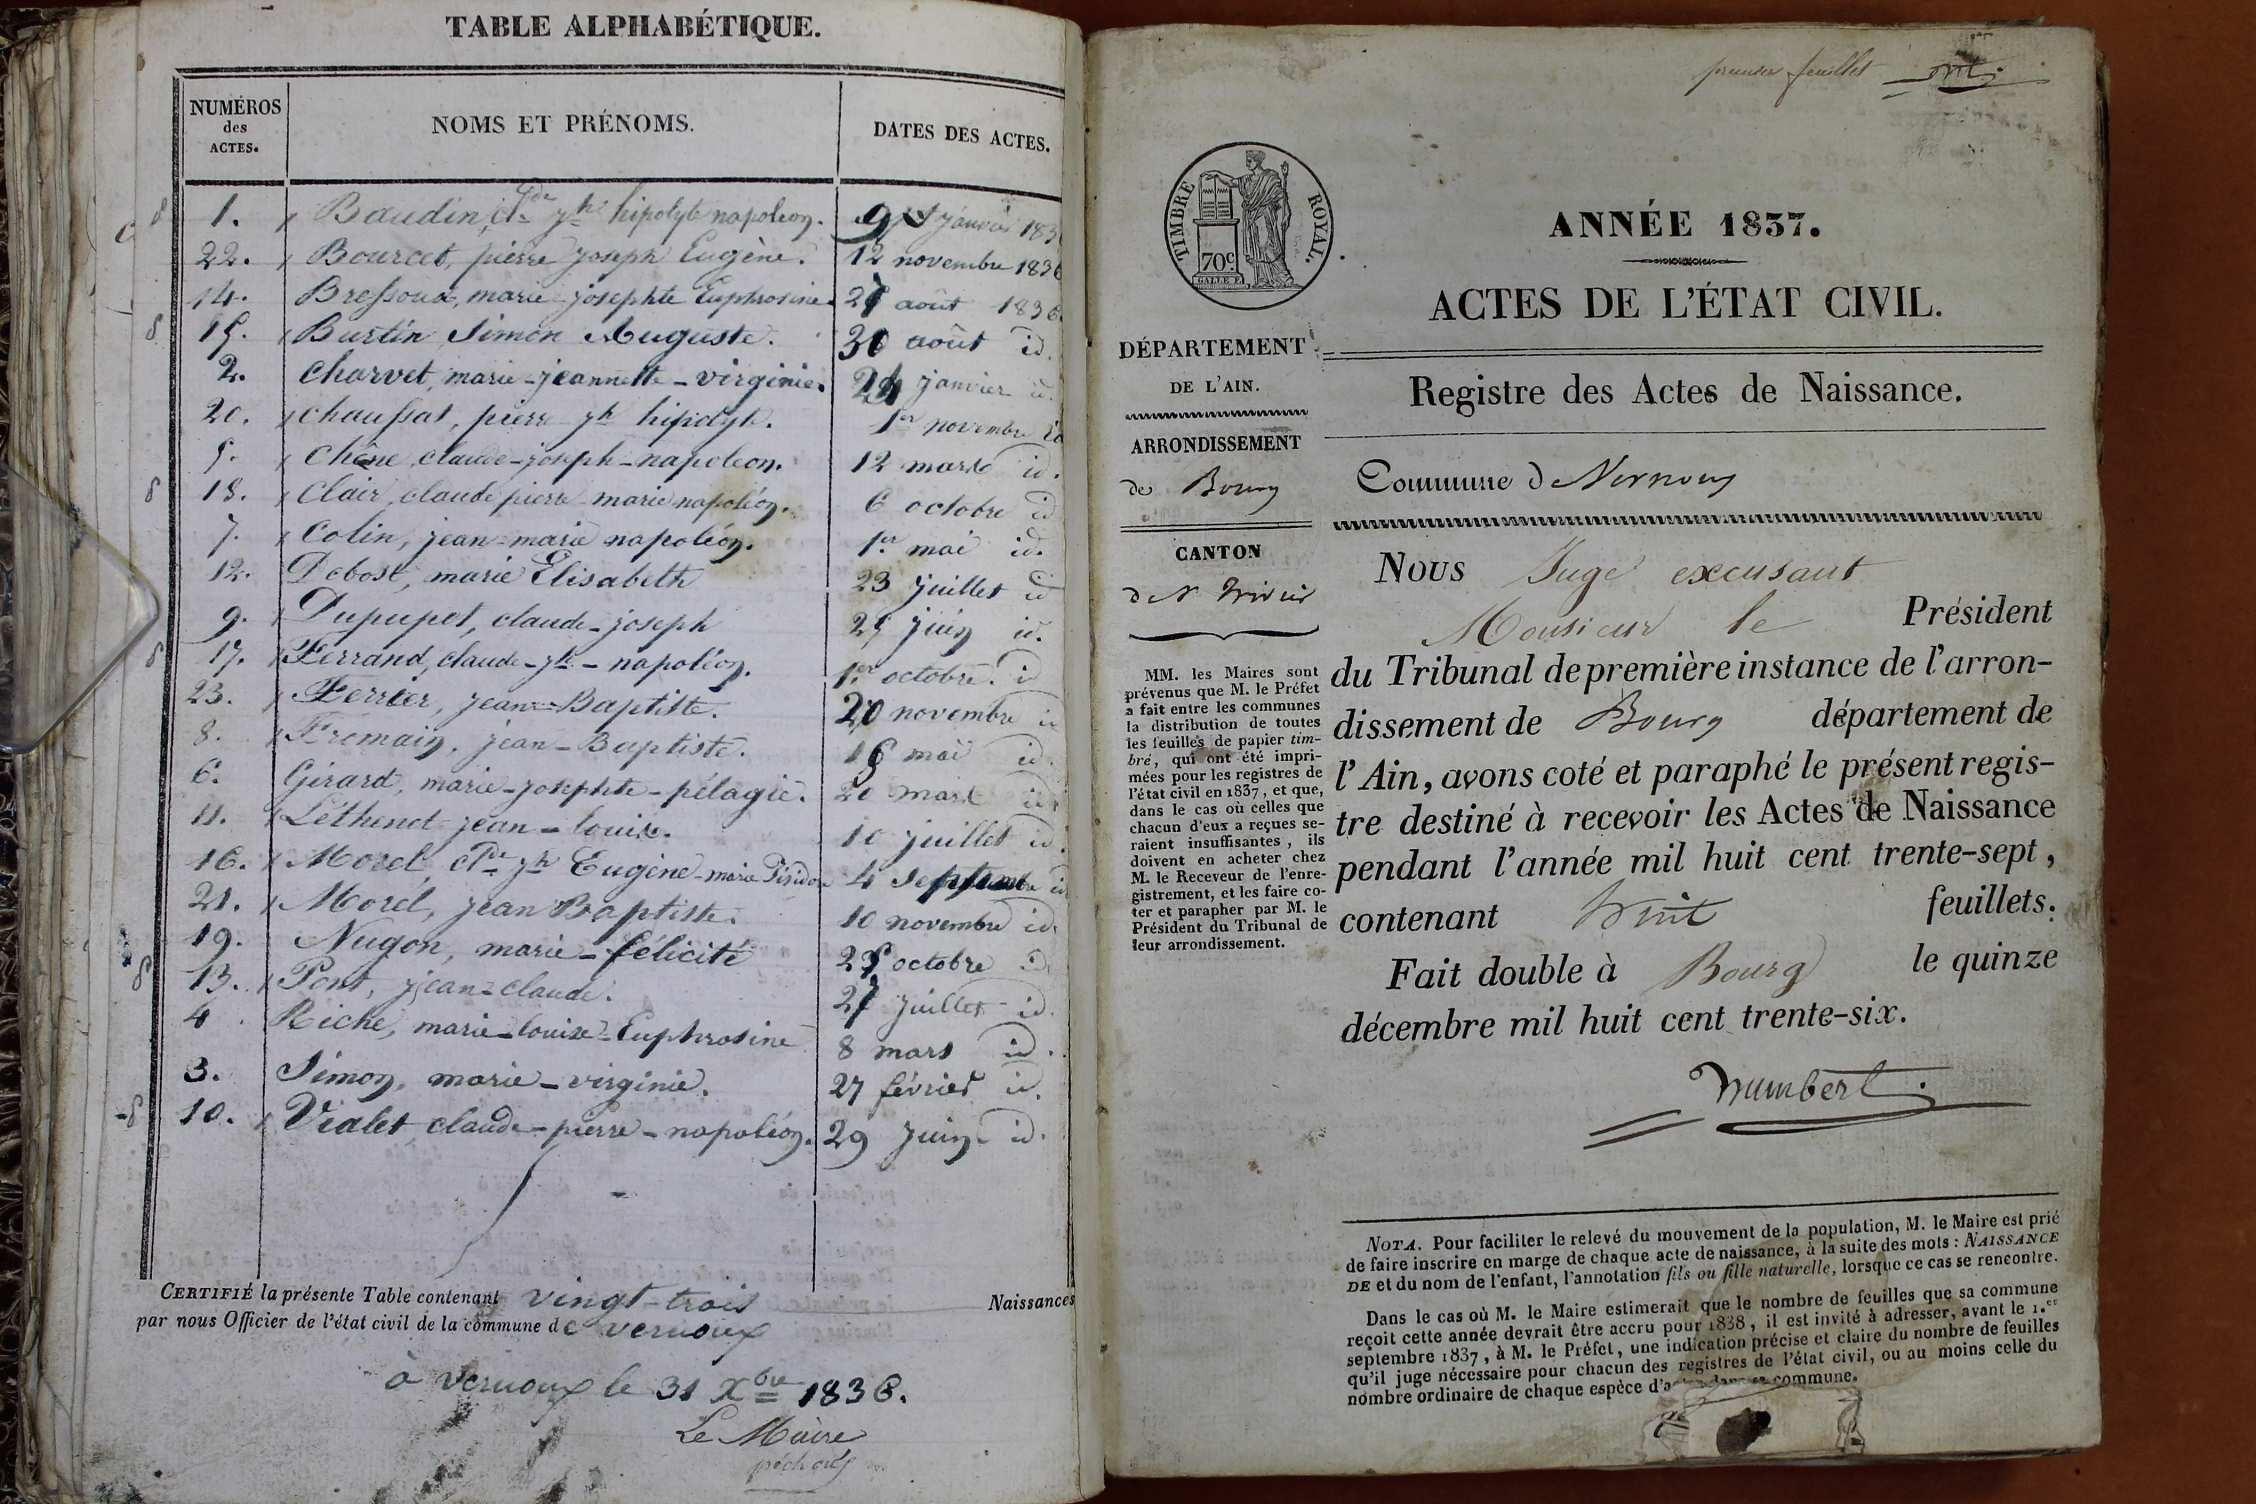 TABLE ALPHABÉTIQUE.
NUMÉROS des ACTES. NOMS ET PRÉNOMS. DATES DES ACTES.
1. Baudin, jh hipolyte napoléon. janvier 183
22. Bourcet, pierre joseph Eugène. 12 novembre 1836
14. Bressoux, marie josephte Euphrosine. août 1836
15. Burtin Simon Auguste. 30 août id.
2. Charvet, marie-jeannette-virginie. 24 janvier id.
20. Chaussat, pierre jh hipolyte. 1er novembre id
5. Chêne, claude-joseph-napoléon. 12 mars id.
18. Clair, claude pierre marie napoléon. 6 octobre id
7. Colin, jean-marie napoléon. 1er mai id.
12. Debost, marie Elisabeth 23 juillet id
9. Dupupet, claude-joseph 25 juin id.
17. Ferrand, claude-jh-napoléon. 1er octobre id
23. Ferrier, jean-Baptiste. 20 novembre id
8. Fremain, jean-Baptiste. mai id.
6. Girard, marie-josephte-pélagie. 20 mars id
11. Léthenot jean-louis. 10 juillet id.
16. Morel, jh Eugène-marie 4 septembre id
21. Morel, jean Baptiste. 10 novembre id.
19. Nugon, marie-félicité octobre id
13. Pont, jean-claude. 27 juillet id.
4. Riche, marie-louise-Euphrosine 8 mars id.
3. Simon, marie-virginie. 27 février id.
10. Vialet claude-pierre-napoléon. 29 juin id.
CERTIFIÉ la présente Table contenant vingt-trois Naissances
par nous Officier de l'état civil de la commune de vernoux
à vernoux le 31 Xbre 1836.
Le Maire
premier feuillet
TIMBRE ROYAL.
70c.
ANNÉE 1837.
ACTES DE L'ÉTAT CIVIL.
DÉPARTEMENT
DE L'AIN.
Registre des Actes de Naissance.
ARRONDISSEMENT
de Bourg
Commune de Vernoux
CANTON
de St Trivier
MM. les Maires sont
prévenus que M. le Préfet
a fait entre les communes
la distribution de toutes
les feuilles de papier tim-
bré, qui ont été impri-
mées pour les registres de
l'état civil en 1837, et que,
dans le cas où celles que
chacun d'eux a reçues se-
raient insuffisantes, ils
doivent en acheter chez
M. le Receveur de l'enre-
gistrement, et les faire co-
ter et parapher par M. le
Président du Tribunal de
leur arrondissement.
Nous Juge excusant
Monsieur le Président
du Tribunal de première instance de l'arron-
dissement de Bourg département de
l'Ain, avons coté et paraphé le présent regis-
tre destiné à recevoir les Actes de Naissance
pendant l'année mil huit cent trente-sept,
contenant huit feuillets.
Fait double à Bourg le quinze
décembre mil huit cent trente-six.
humbert.
NOTA. Pour faciliter le relevé du mouvement de la population, M. le Maire est prié
de faire inscrire en marge de chaque acte de naissance, à la suite des mots : NAISSANCE
DE et du nom de l'enfant, l'annotation fils ou fille naturelle, lorsque ce cas se rencontre.
Dans le cas où M. le Maire estimerait que le nombre de feuilles que sa commune
reçoit cette année devrait être accru pour 1838, il est invité à adresser, avant le 1.er
septembre 1837, à M. le Préfet, une indication précise et claire du nombre de feuilles
qu'il juge nécessaire pour chacun des registres de l'état civil, ou au moins celle du
nombre ordinaire de chaque espèce commune.